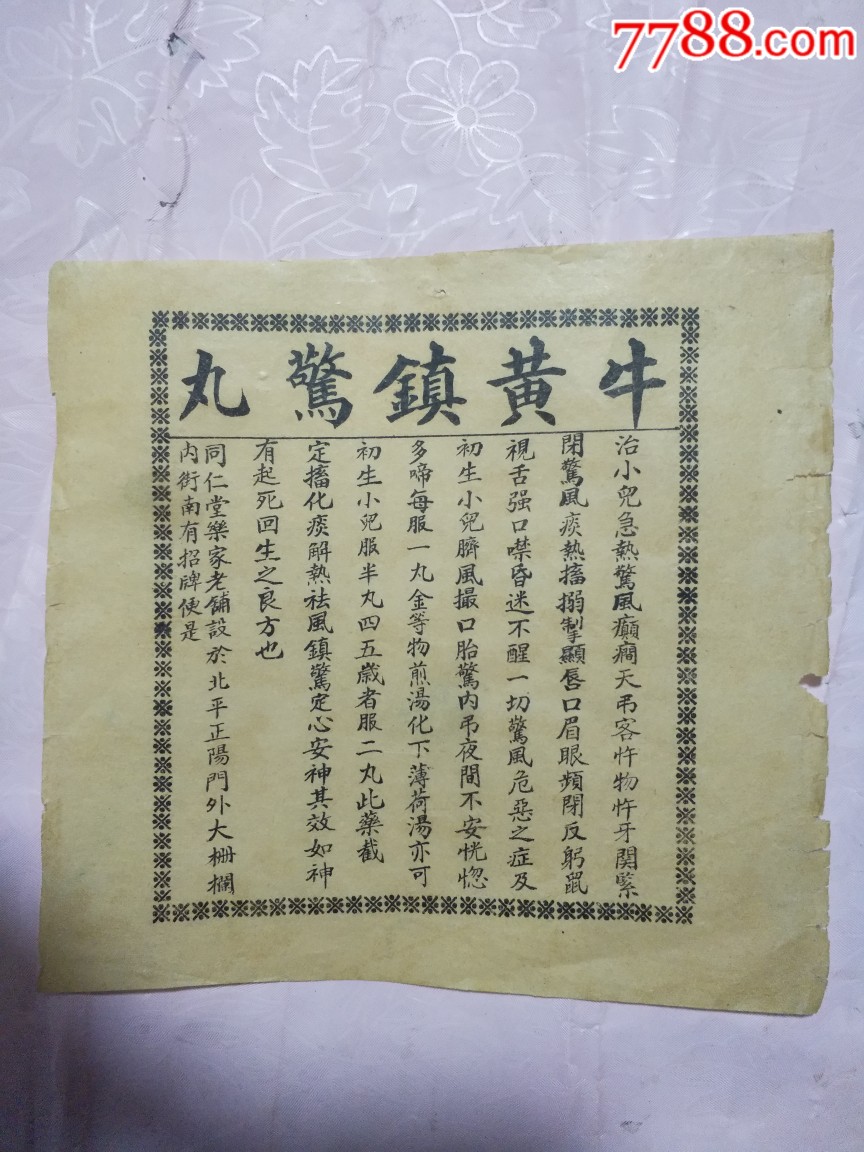 7788.com
牛黄鎮驚丸
治小兒急熱驚風癲癇天弔客忤物忤牙関緊
閉驚風痰熱搐搦掣顯唇口眉眼頻閉反躬鼠
視舌强口噤昏迷不醒一切驚風危惡之症及
初生小兒臍風撮口胎驚内弔夜間不安恍惚
多啼每服一丸金等物煎湯化下薄荷湯亦可
初生小兒服半丸四五歲者服二丸此藥截
定搐化痰解熱祛風鎮驚定心安神其效如神
有起死回生之良方也
同仁堂樂家老舖設於北平正陽門外大栅欄
内街南有招牌便是